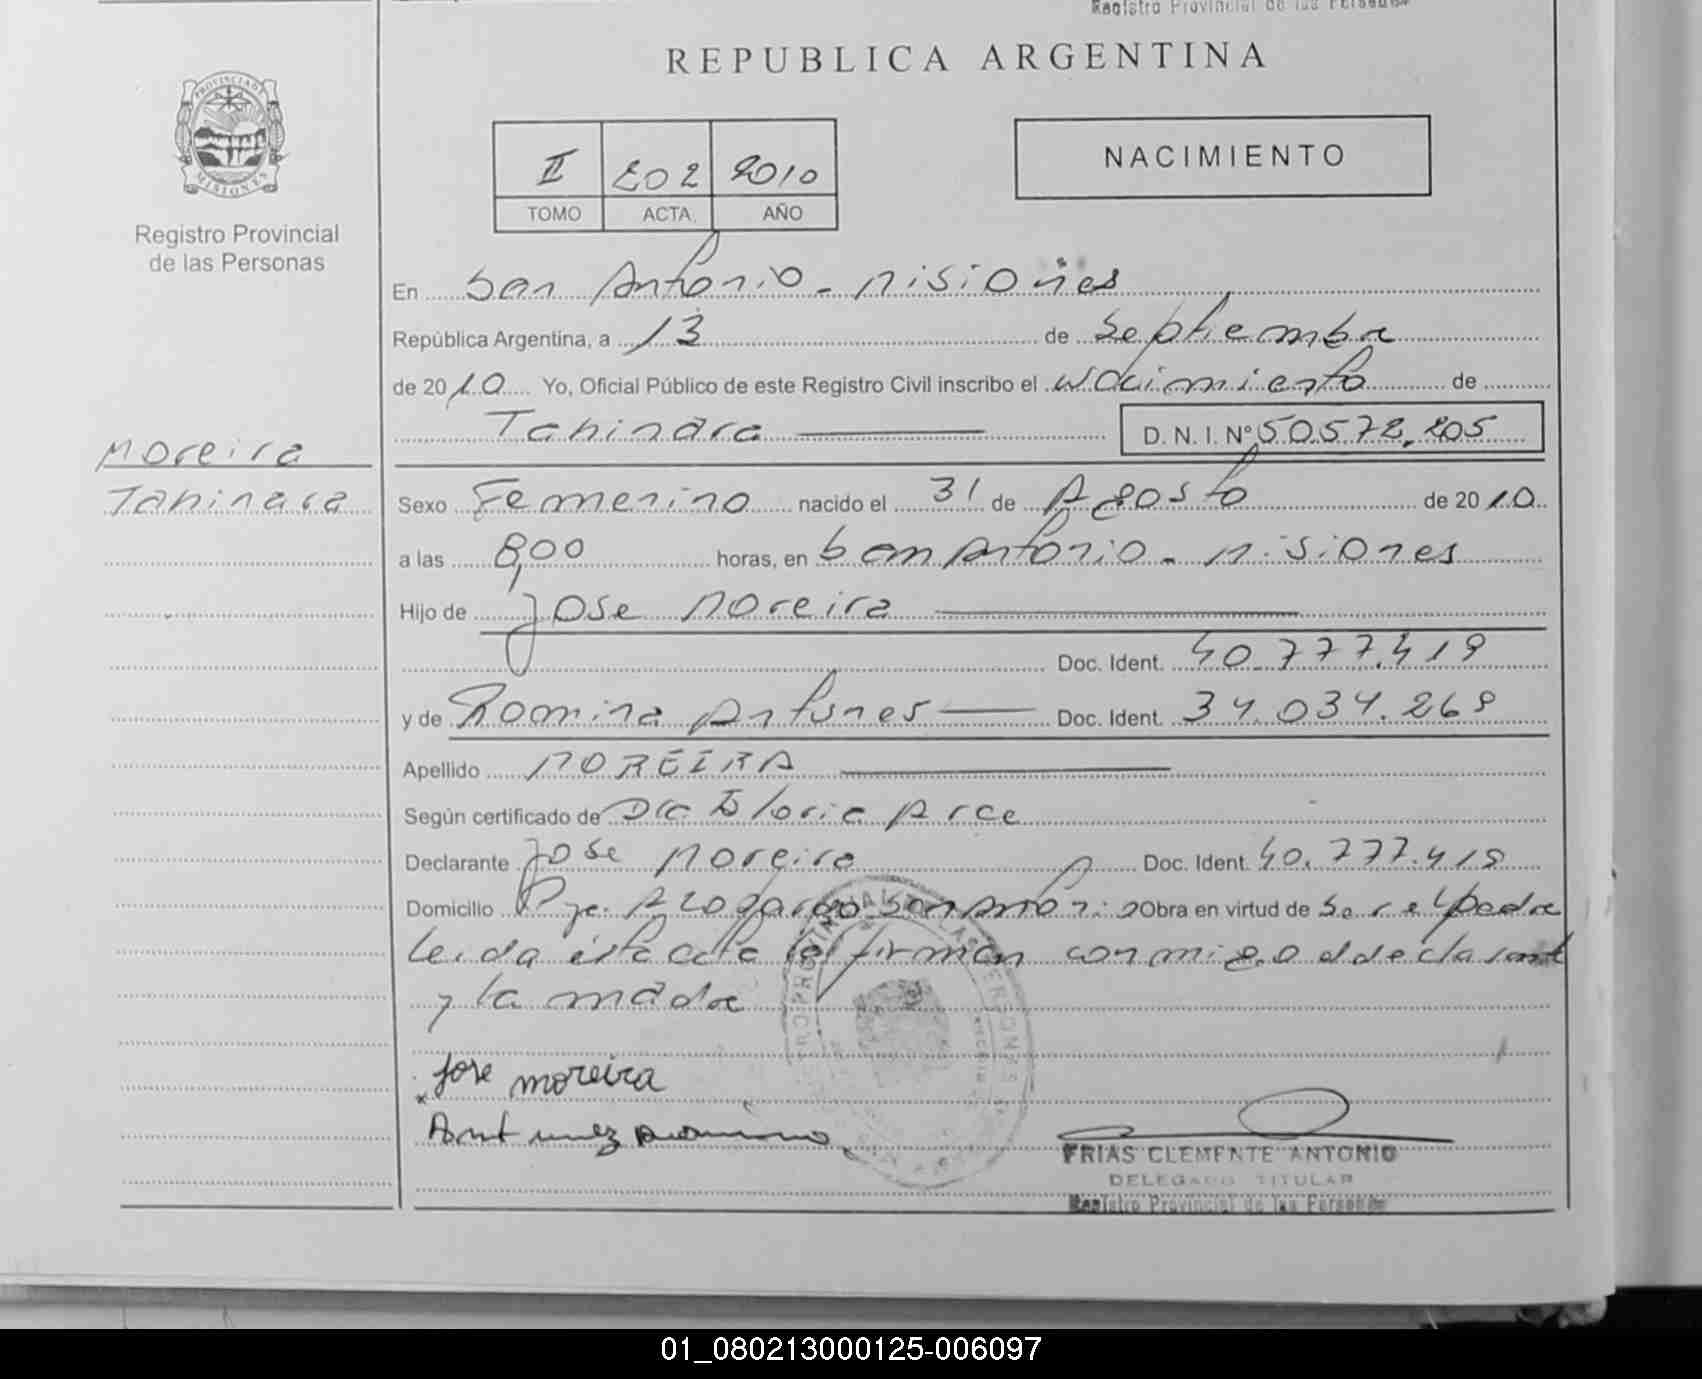 Registro Provincial de las Personas
REPUBLICA ARGENTINA
PROVINCIA DE
MISIONES
Registro Provincial
de las Personas
II 202 2010
TOMO ACTA AÑO
NACIMIENTO
En San Antonio - Misiones
República Argentina, a 13 de Septiembre
de 2010 Yo, Oficial Público de este Registro Civil inscribo el Nacimiento de
Tahinara D. N. I. Nº 50572.205
Moreira
Tahinara
Sexo Femenino nacido el 31 de Agosto de 2010
a las 8,00 horas, en San Antonio - Misiones
Hijo de Jose Moreira
Doc. Ident. 40.777.419
y de Romina Antunes Doc. Ident. 34.034.268
Apellido MOREIRA
Según certificado de Dra Gloria Arce
Declarante Jose Moreira Doc. Ident. 40.777.419
Domicilio San Antonio Obra en virtud de Ser el padre
Leida esta acta la firman conmigo el declarante
y la madre
Jose moreira
Antunez Romina
FRIAS CLEMENTE ANTONIO
DELEGADO TITULAR
Registro Provincial de las Personas
01_080213000125-006097